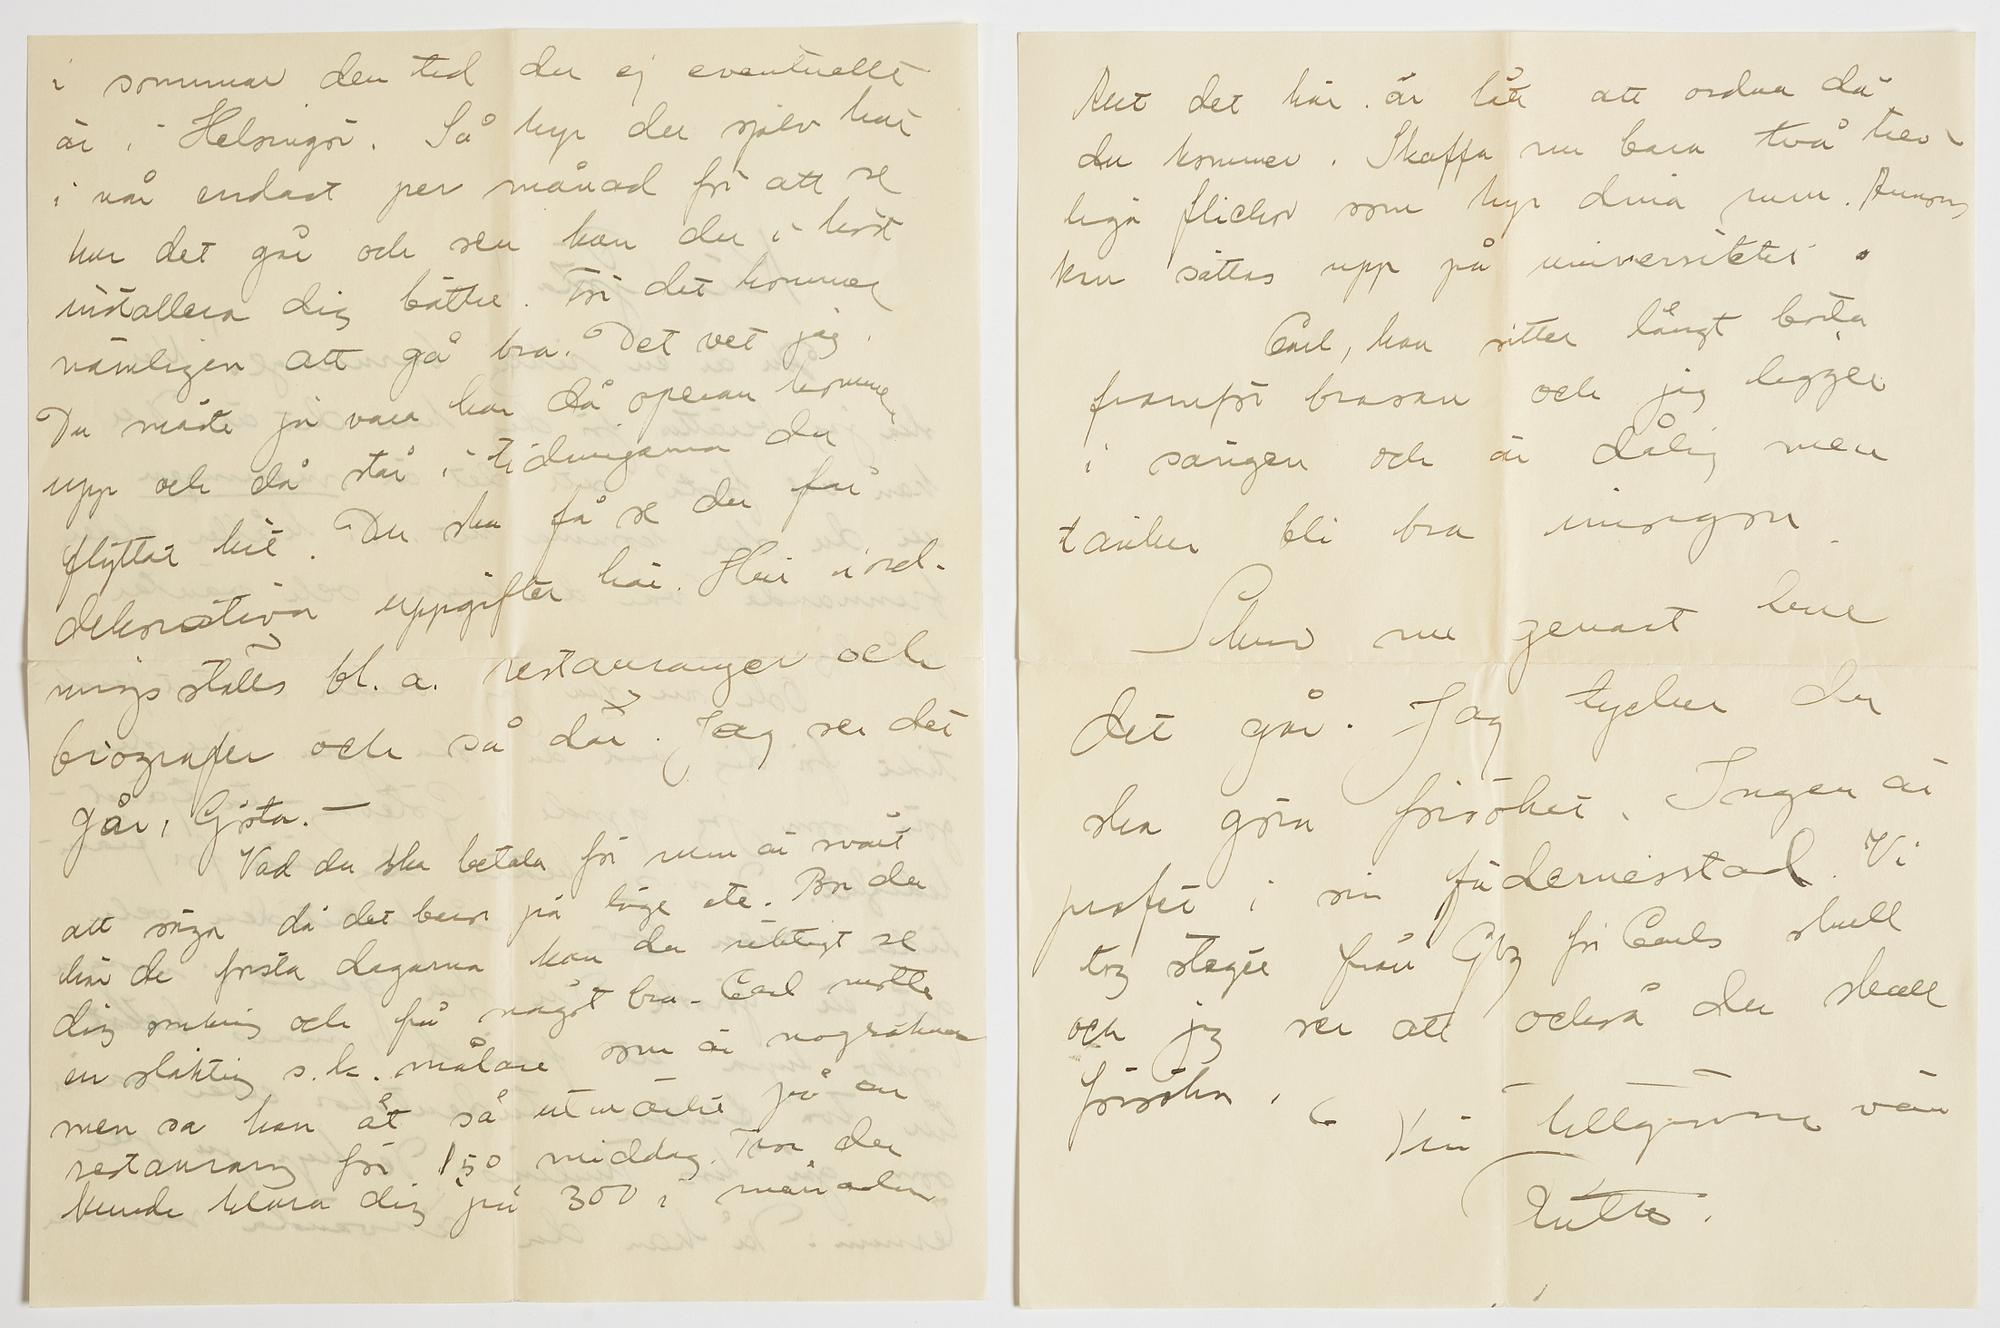 i sommar den tid du ej eventuellt
är i Helsingör. Så hyr du själv här
i vår endast per månad för att se
hur det går och sen kan du i höst
installera dig bättre. För det kommer
nämligen att gå bra. Det vet jag.
Du måste ju vara här då operan kommer
upp och då står i tidningarna du
flyttat hit. Du ska få se du får
dekorativa uppgifter här. Här i ord-
nings ställes bl. a. restauranger och
biografer och så där. Jag ser det
går, Gösta. —
Vad du ska betala för rum är svårt
att säga då det beror på läge etc. Bor du
här de första dagarna kan du riktigt se
dig omkring och få något bra. Carl mötte
en släkting s.k. målare som är nogräknad
men sa han åt så utmärkt på en
restaurang för 1,50 middag. Tror du
kunde klara dig på 300 i månaden
Allt det här är lätt att ordna då
du kommer. Skaffa nu bara två trev-
liga flickor som hyr dina rum. Annons
kan sättas upp på universitetet.
Carl, han sitter långt borta
framför brasan och jag ligger
i sängen och är dålig men
tänker bli bra imorgon.
Skriv nu genast hur
det går. Jag tycker du
ska göra försöket. Ingen är
profet i sin fädernesstad. Vi
tog steget från Gbg för Carls skull
och jag ser att också du skall
försöka.
Din tillgivne vän